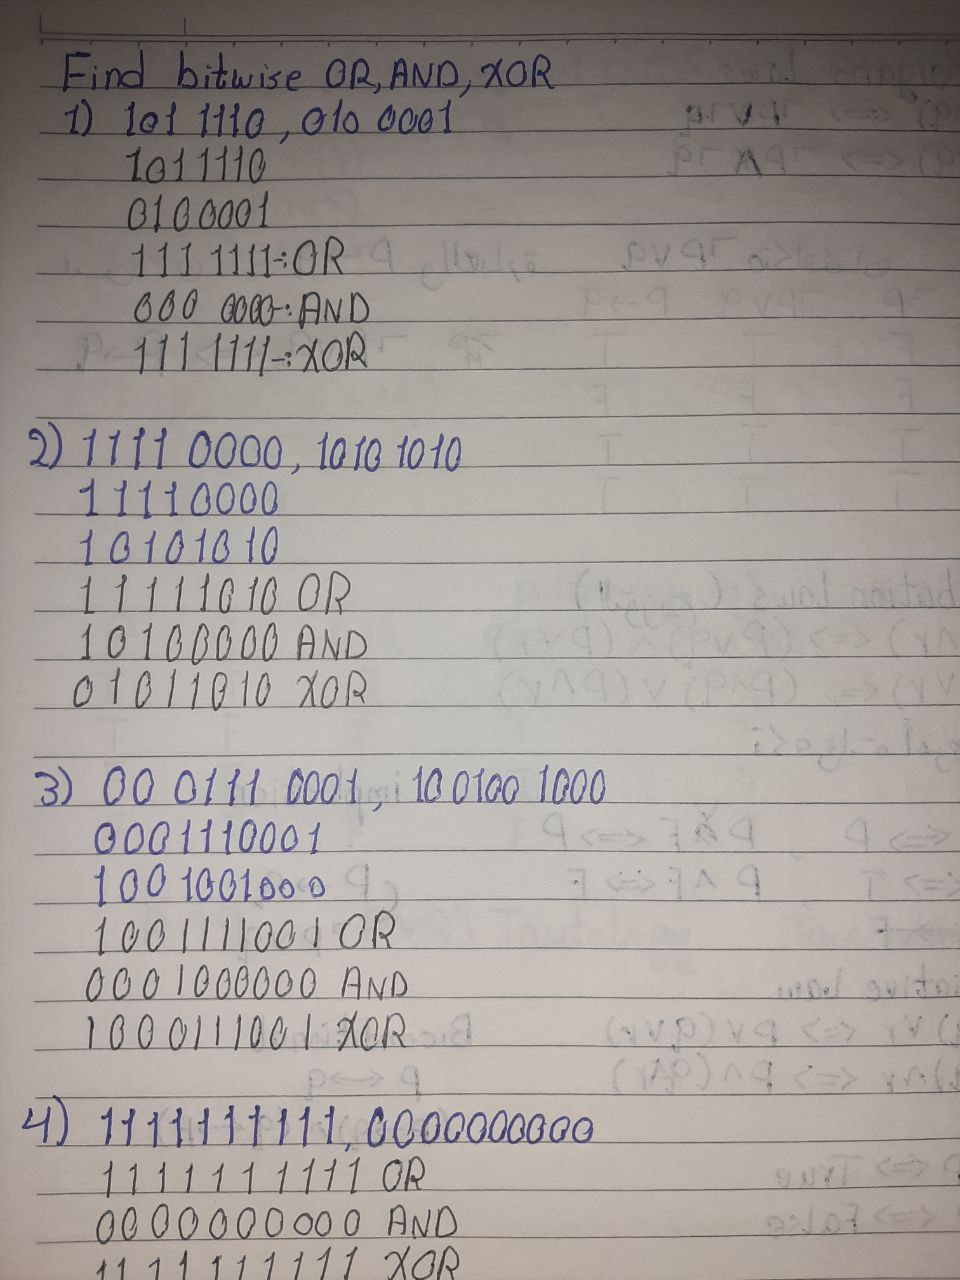 Find bitwise OR, AND, XOR
1) 101 1110, 010 0001
1011110
0100001
111 1111-:OR
000 0000-:AND
111 1111-:XOR
2) 1111 0000, 1010 1010
11110000
10101010
11111010 OR
10100000 AND
01011010 XOR
3) 00 0111 0001, 10 0100 1000
0001110001
1001001000
1001111001 OR
0001000000 AND
1000111001 XOR
4) 1111111111, 0000000000
1111111111 OR
0000000000 AND
1111111111 XOR